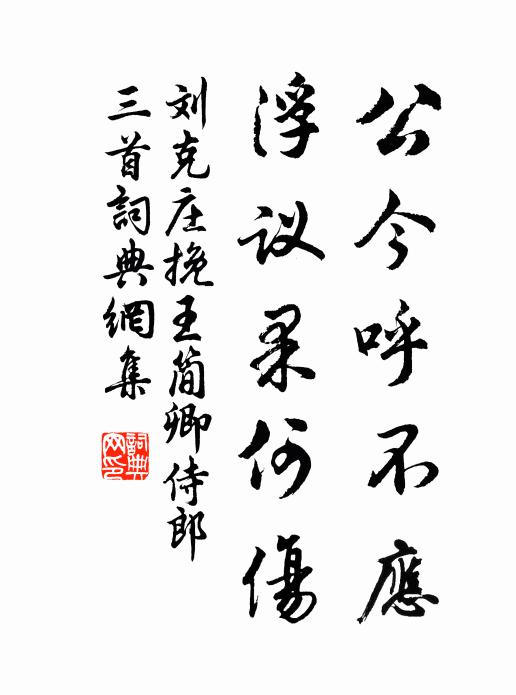 公今呼不應
浮议果何傷
刘克庄挽王简卿侍郎
三首詞典網集
詞典網印